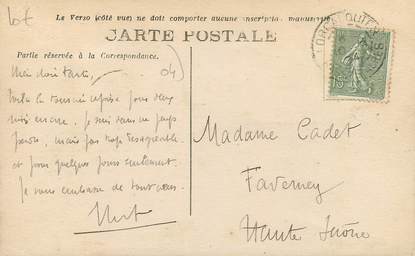 Le Verso (côté vue) ne doit comporter aucune inscription manuscrite
CARTE POSTALE
Partie réservée à la Correspondance.
04)
Voilà la tournée reprise pour deux
mois encore. je suis dans un pays
perdu, mais pas trop désagréable
et pour quelques jours seulement.
Je vous embrasse de tout cœur.
Madame Cadet
Faverney
Haute Saône